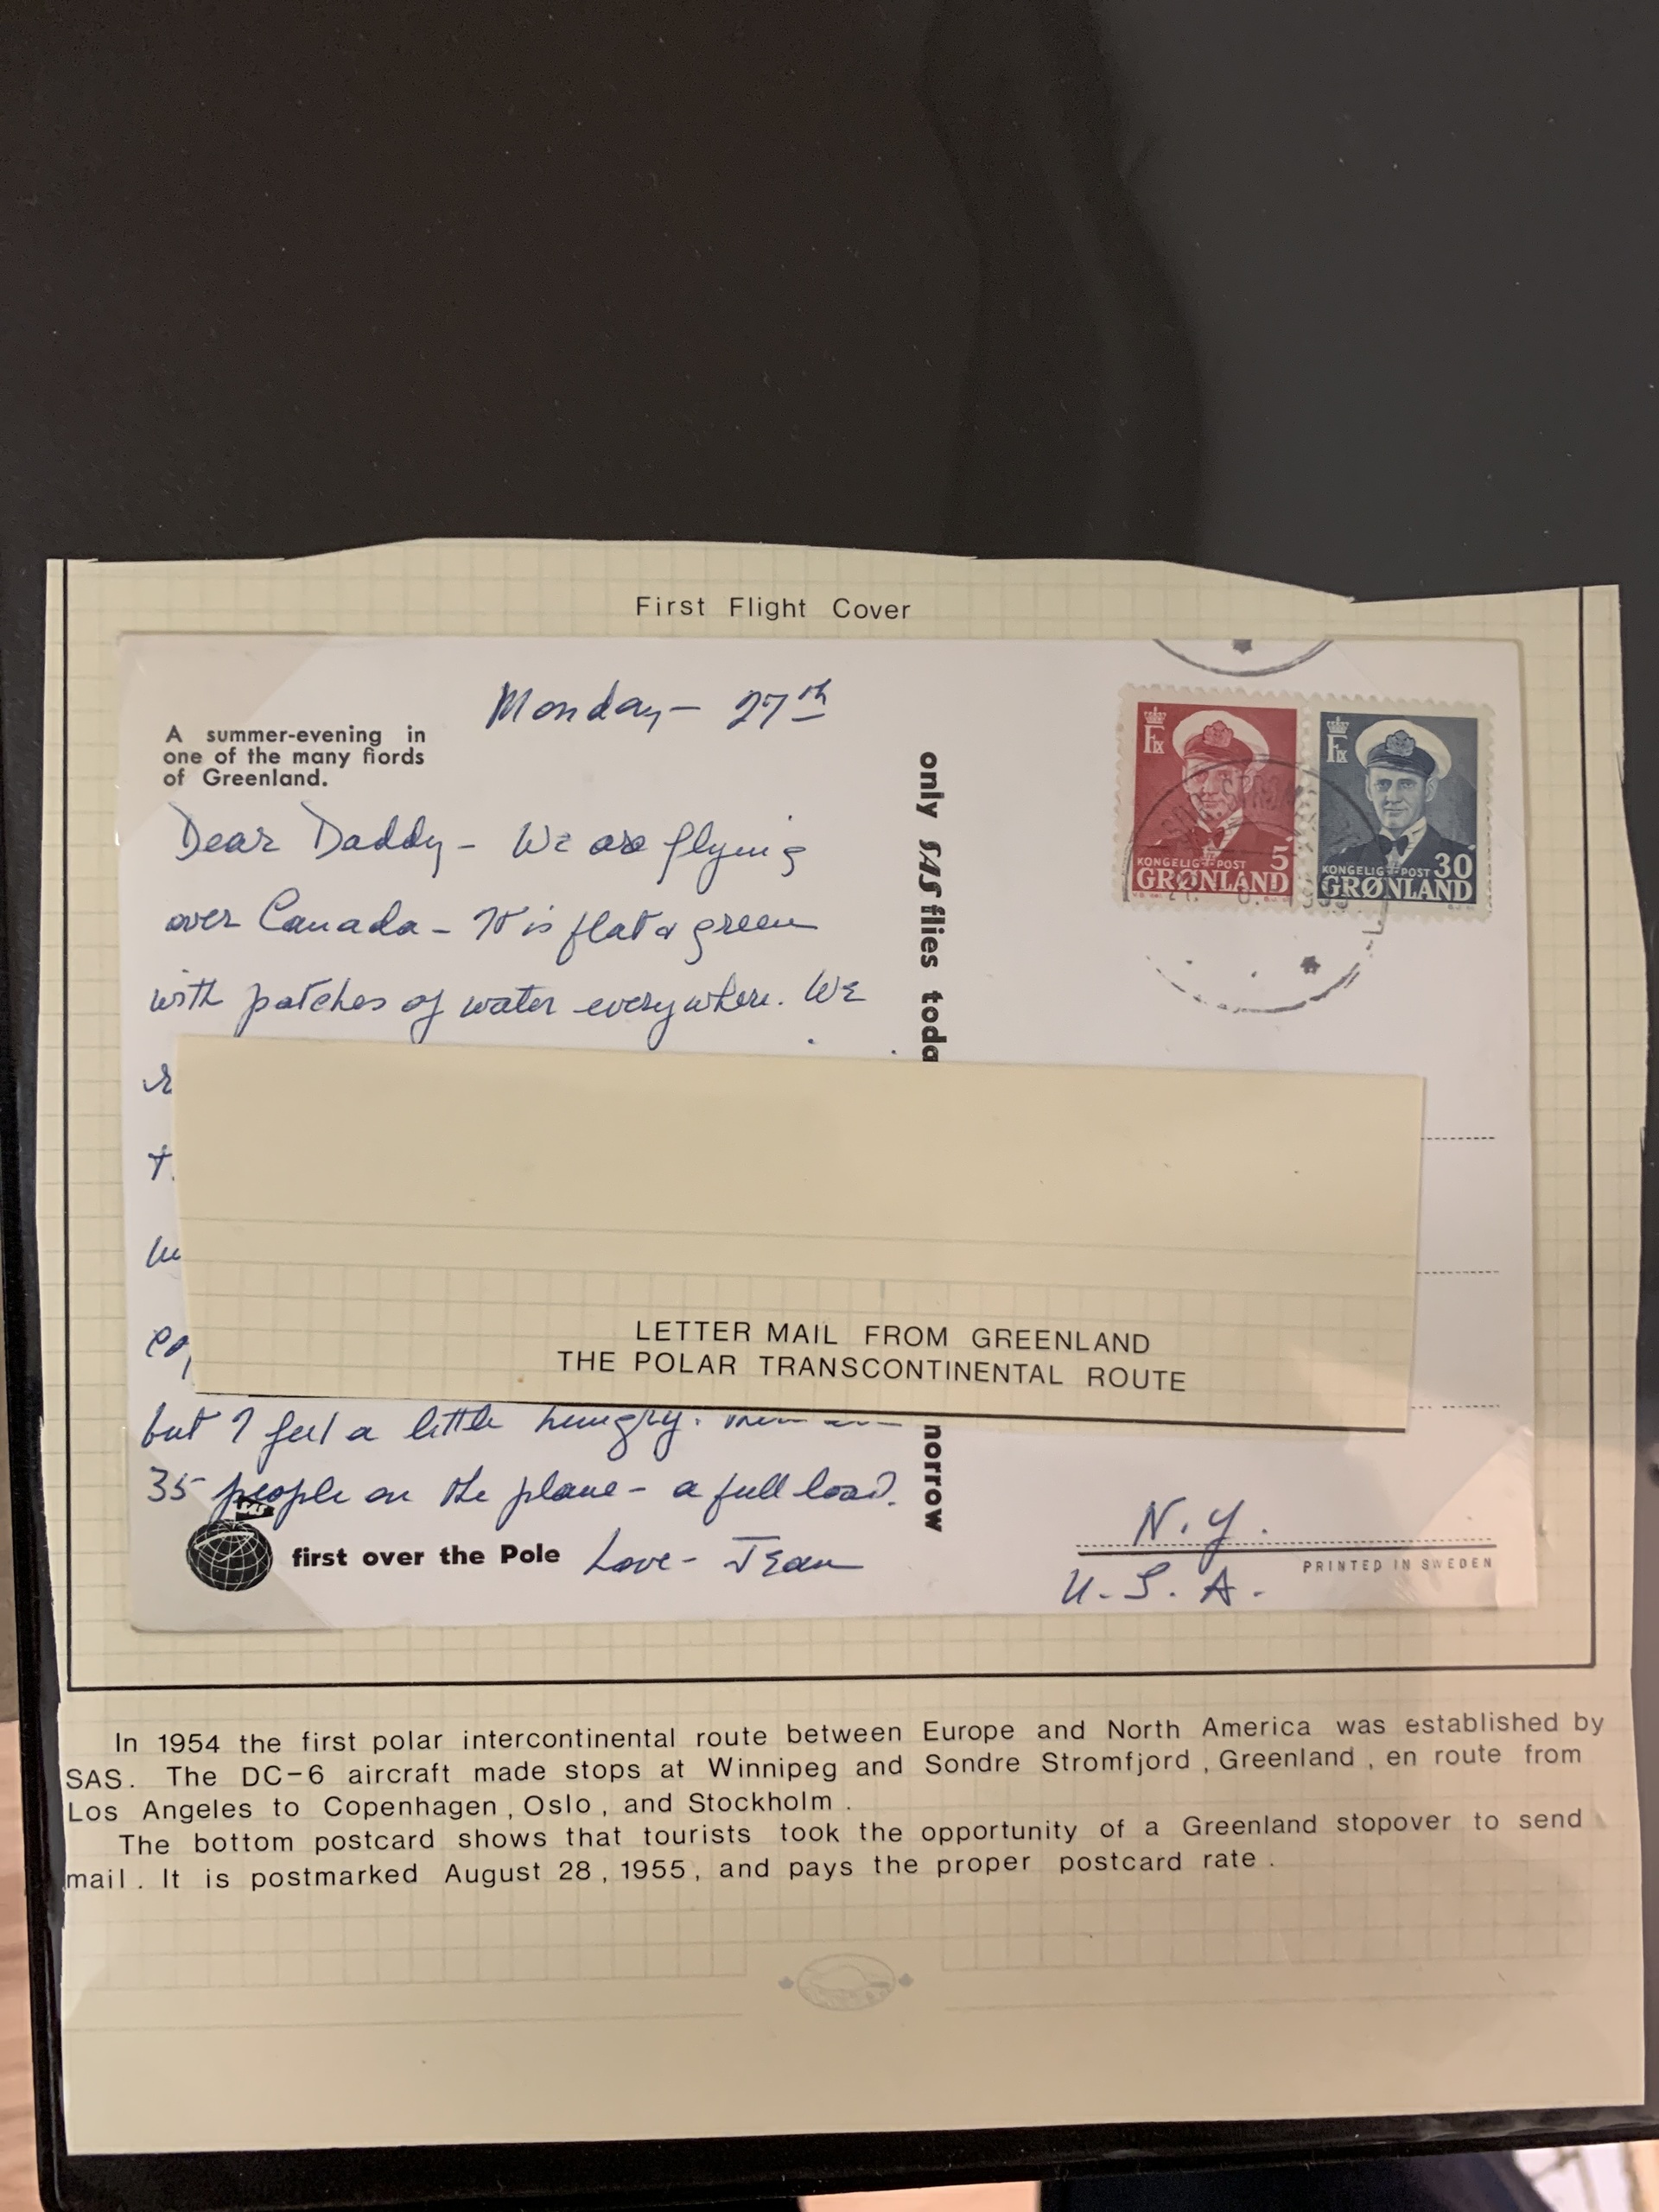 First Flight Cover
Monday - 27th
A summer-evening in
one of the many fiords
of Greenland.
Dear Daddy - We are flying
over Canada - It is flat & green
with patches of water everywhere. We
but I feel a little hungry.
35 people on the plane - a full load.
first over the Pole
Love - Jean
only SAS flies toda
norrow
FIX
5
KONGELIG POST
GRØNLAND
FIX
30
KONGELIG POST
GRØNLAND
LETTER MAIL FROM GREENLAND
THE POLAR TRANSCONTINENTAL ROUTE
N.Y.
PRINTED IN SWEDEN
U.S.A.
In 1954 the first polar intercontinental route between Europe and North America was established by
SAS. The DC-6 aircraft made stops at Winnipeg and Sondre Stromfjord, Greenland, en route from
Los Angeles to Copenhagen, Oslo, and Stockholm.
The bottom postcard shows that tourists took the opportunity of a Greenland stopover to send
mail. It is postmarked August 28, 1955, and pays the proper postcard rate.